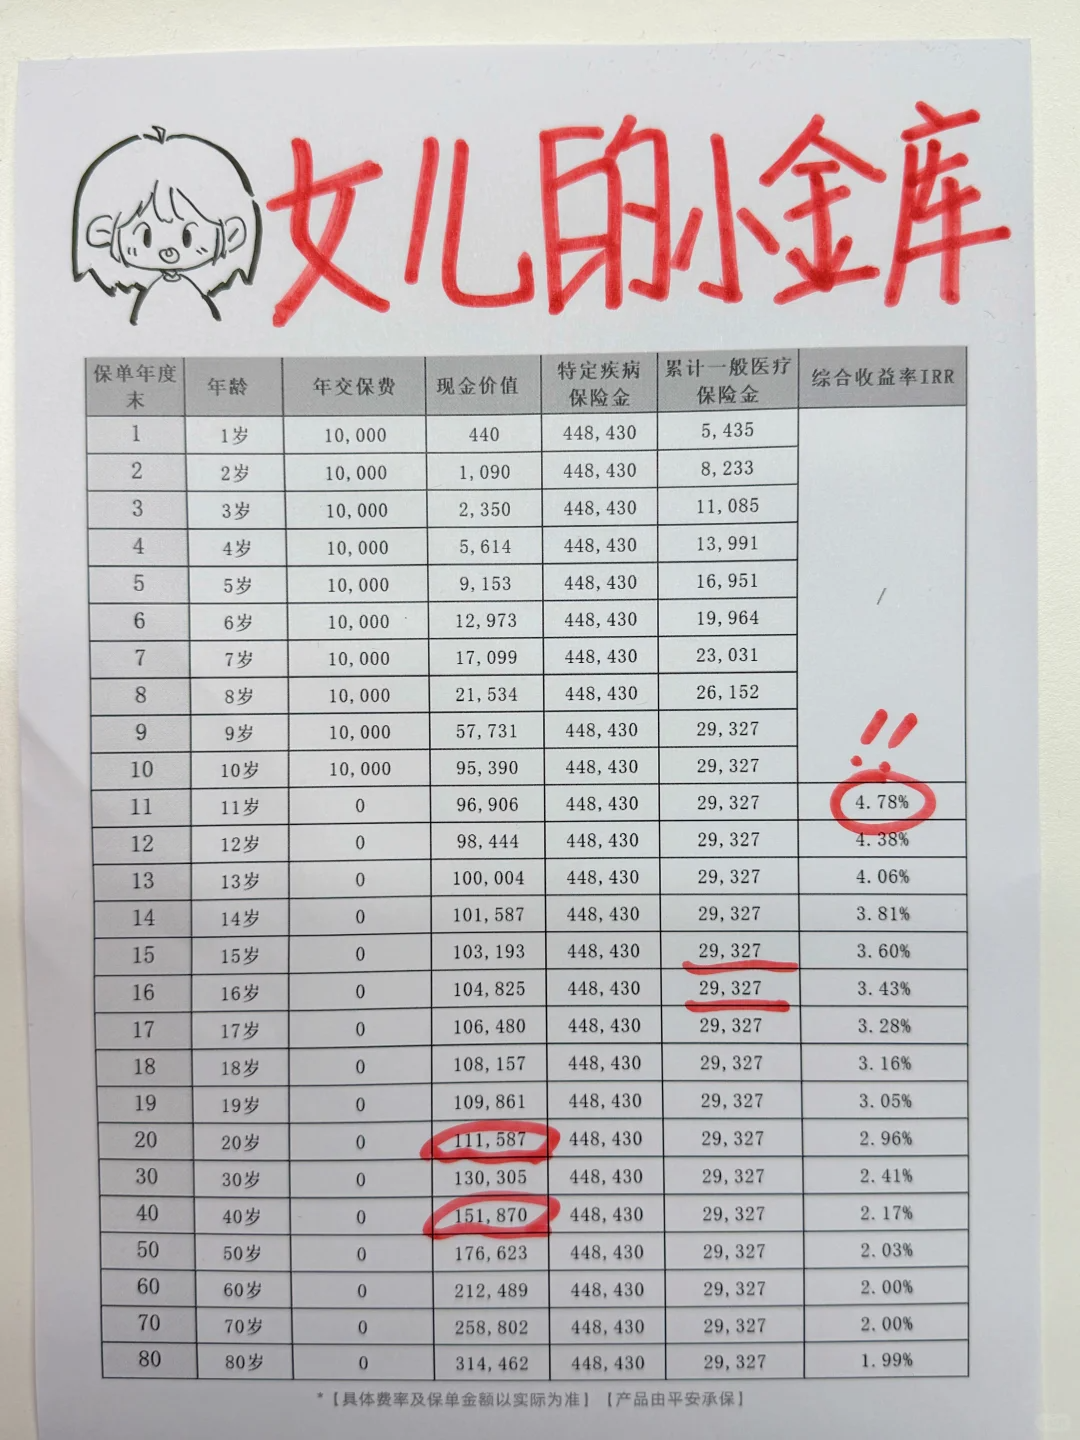 女儿的小金库
保单年度末 年龄 年交保费 现金价值 特定疾病保险金 累计一般医疗保险金 综合收益率IRR
1 1岁 10,000 440 448,430 5,435
2 2岁 10,000 1,090 448,430 8,233
3 3岁 10,000 2,350 448,430 11,085
4 4岁 10,000 5,614 448,430 13,991
5 5岁 10,000 9,153 448,430 16,951 /
6 6岁 10,000 12,973 448,430 19,964
7 7岁 10,000 17,099 448,430 23,031
8 8岁 10,000 21,534 448,430 26,152
9 9岁 10,000 57,731 448,430 29,327 !!
10 10岁 10,000 95,390 448,430 29,327
11 11岁 0 96,906 448,430 29,327 4.78%
12 12岁 0 98,444 448,430 29,327 4.38%
13 13岁 0 100,004 448,430 29,327 4.06%
14 14岁 0 101,587 448,430 29,327 3.81%
15 15岁 0 103,193 448,430 29,327 3.60%
16 16岁 0 104,825 448,430 29,327 3.43%
17 17岁 0 106,480 448,430 29,327 3.28%
18 18岁 0 108,157 448,430 29,327 3.16%
19 19岁 0 109,861 448,430 29,327 3.05%
20 20岁 0 111,587 448,430 29,327 2.96%
30 30岁 0 130,305 448,430 29,327 2.41%
40 40岁 0 151,870 448,430 29,327 2.17%
50 50岁 0 176,623 448,430 29,327 2.03%
60 60岁 0 212,489 448,430 29,327 2.00%
70 70岁 0 258,802 448,430 29,327 2.00%
80 80岁 0 314,462 448,430 29,327 1.99%
*【具体费率及保单金额以实际为准】【产品由平安承保】